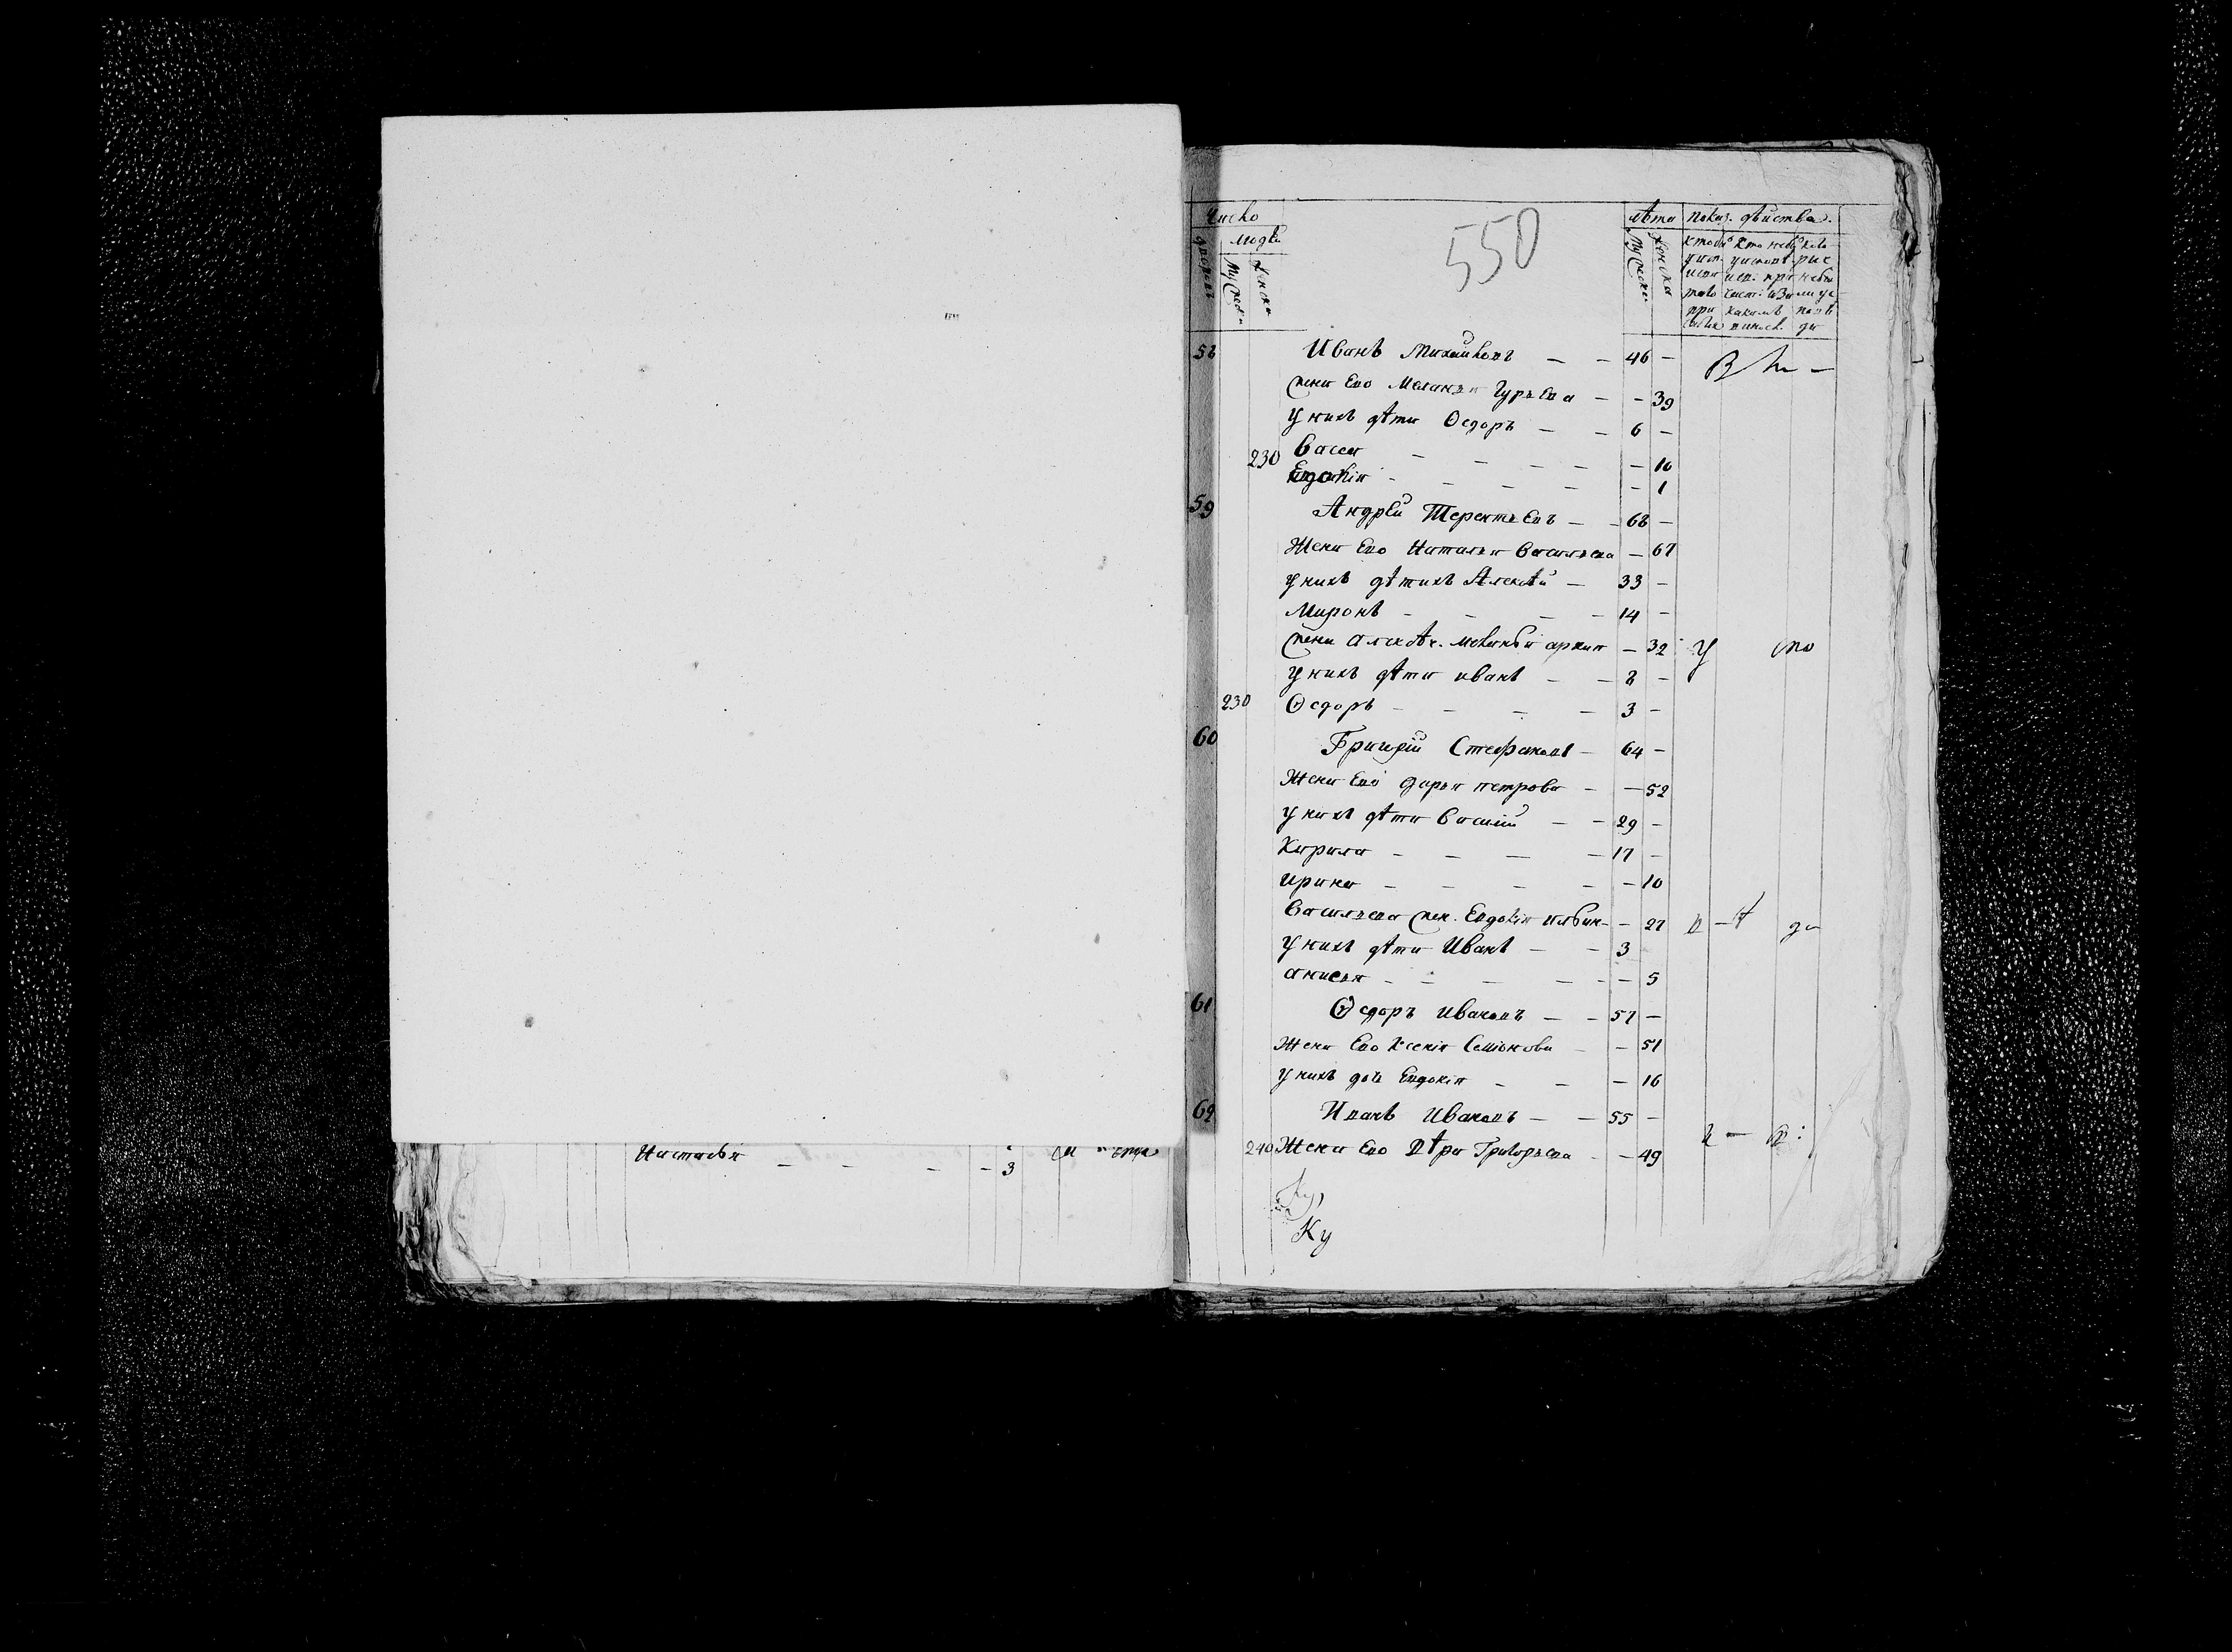 Настасья - - - - 3
Число
людей
дворовъ
Мужеска
Женска
550
лѣта
Мужеска
Женска
показ. дѣйства.
58 Иванъ Михайловъ - - 46 -
жена Ево Меланья Гурьева - - 39
у нихъ дѣти Ѳедоръ - - 6 -
230 Васса - - - - - 10
Евдокія - - - - - 1
59 Андрей Терентьевъ - - 68 -
Жена Ево Наталья Васильева - 67
у нихъ дѣтихъ Алексѣй - 33 -
Миронъ - - - - 14 -
жена Алексѣя - 32
у нихъ дѣти иванъ - - 8 -
230 Ѳедоръ - - - - 3 -
60 Григорій Стефановъ - 64 -
Жена Ево дарья петрова - - 52
у нихъ дѣти Василій - - 29 -
Кирила - - - - 17 -
ирина - - - - - 10
Васильева жен. Евдокія - - 27
у нихъ дѣти Иванъ - - 3
анисья - - - - - - 5
61 Ѳедоръ Ивановъ - - 57 -
Жена Ево Ксенія Семіонова - - 51
у нихъ дочь Евдокія - - - 16
62 Иванъ Ивановъ - - 55 -
240 Жена Ево Вѣра Григорьева - - 49
Ку